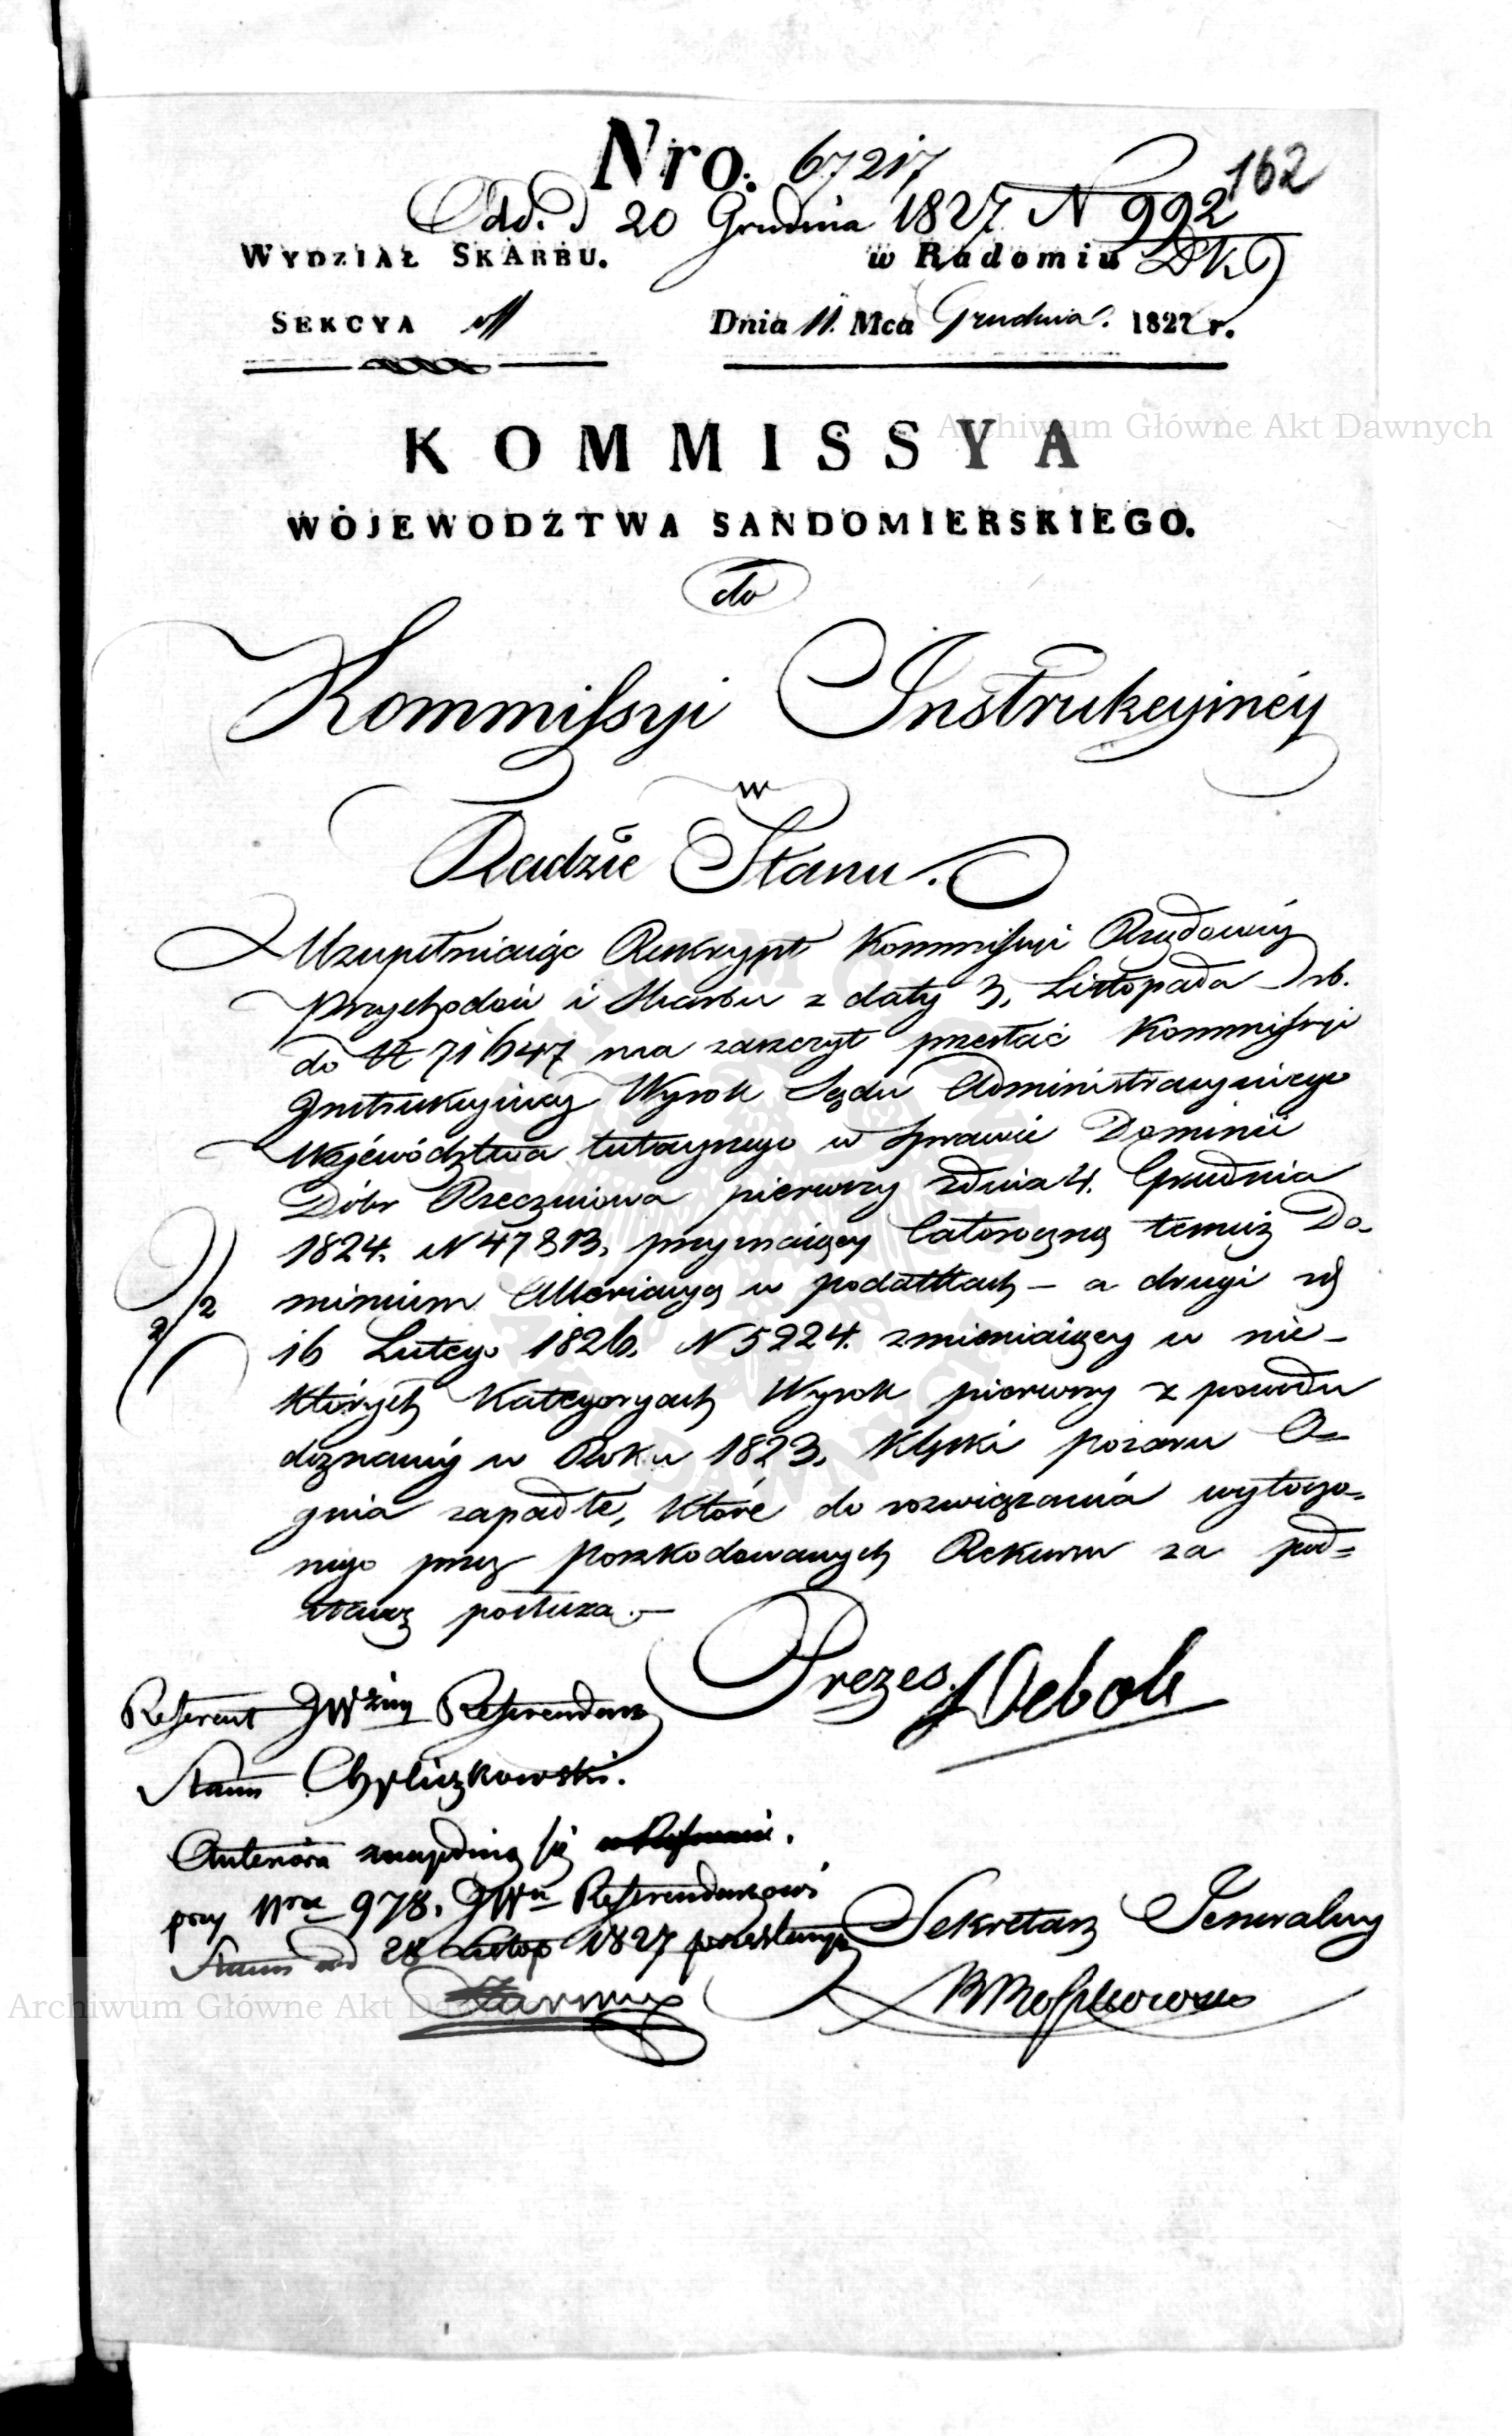 162
Nro. 67217
Odd. d 20 Grudnia 1827 N 992
DK
WYDZIAŁ SKARBU. w Radomiu
SEKCYA II Dnia 11. Mca Grudnia. 1827 r.
KOMMISSYA
WOJEWODZTWA SANDOMIERSKIEGO.
do
Kommissyi Instrukcyinéy
w
Radzie Stanu.
Uzupełniaiąc Reskrypt Kommissyi Rządowéy
Przychodów i Skarbu z daty 3. Listopada rb.
do N 71647 ma zaszczyt przesłać Kommissyi
Instrukcyinéy Wyrok Sądu Administracyinego
Wojewódzwa tutaysznego w Sprawie Dominii
Dóbr Rzeczniowa pierwszy z dnia 4. Grudnia
1824. N 47313. przyznaiący Całoroczną temuż Do-
minium Allewiacyą w podatkach – a drugi z d
16 Lutego 1826. N 5224. zmieniaiący w nie-
których Kategoryach Wyrok pierwszy z powodu
doznanéy w Roku 1823. Klęski pożaru O-
gnia zapadłe, które do rozwiązania wytoczo-
nego przez Poszkodowanych Rekursu za pod-
stawę posłużą.–
2/2
Prezes Deboli
Referent JWżny Referendarz
Stanu Chyliczkowski.
Anteriora znayduią się
przy Nrze 978. JWu Referendarzowi
Stanu od 28 Listop 1827 przesłanym
Sekretarz Jeneralny
Archiwum Główne Akt Dawnych
Archiwum Główne Akt Dawnych
ARCHIWUM GŁÓWNE AKT DAWNYCH